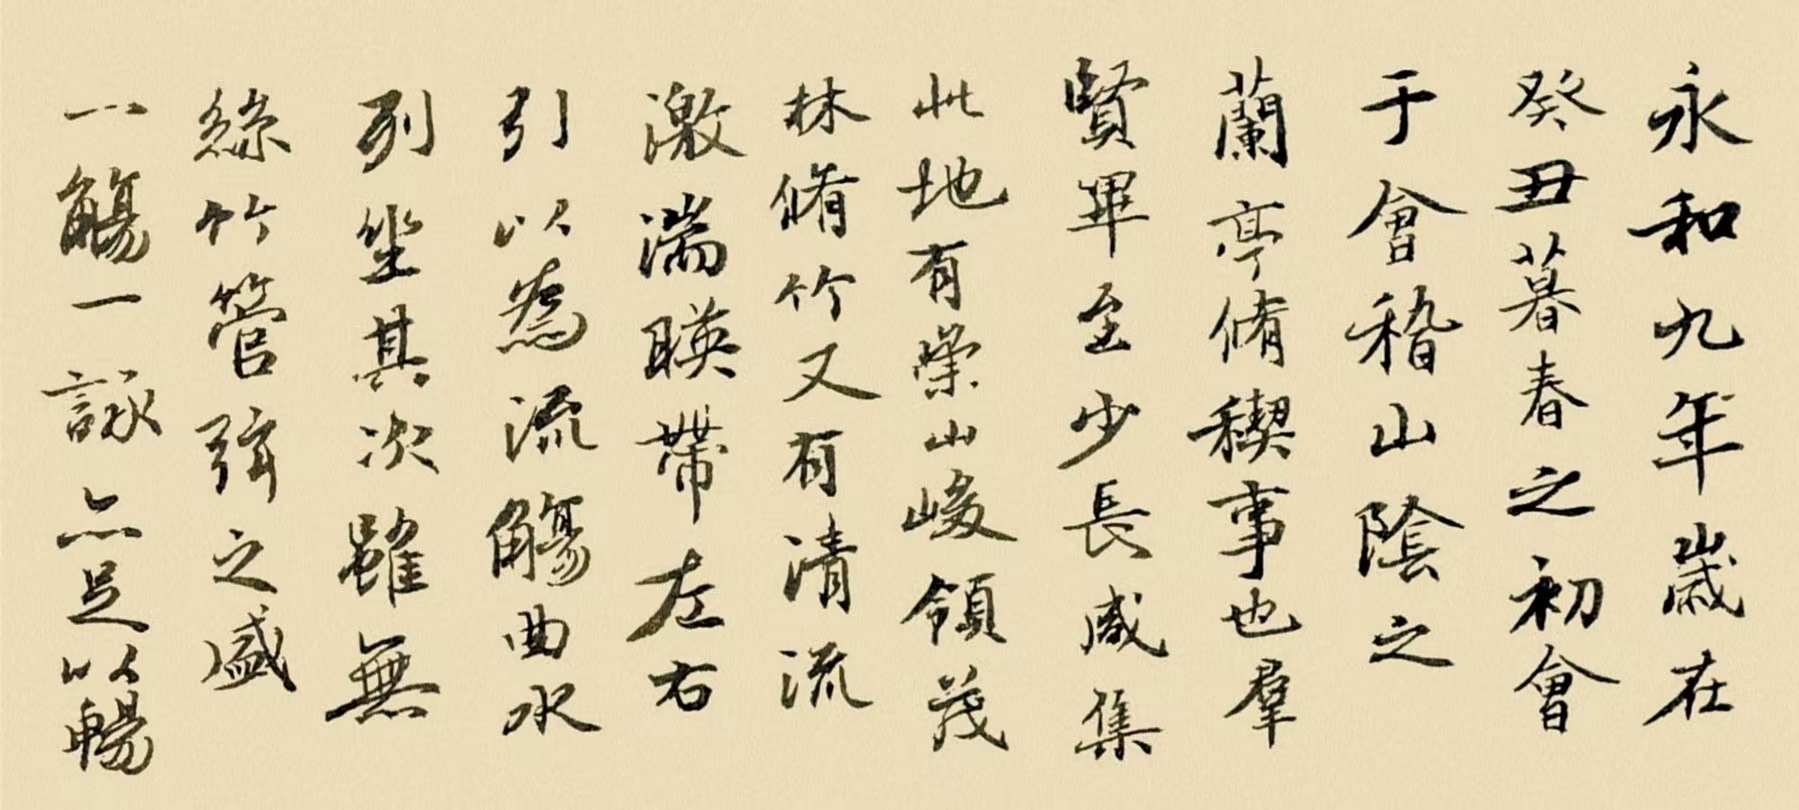 永和九年歲在
癸丑暮春之初會
于會稽山陰之
蘭亭脩稧事也羣
賢畢至少長咸集
此地有崇山峻領茂
林脩竹又有清流
激湍暎帶左右
引以為流觴曲水
列坐其次雖無
絲竹管弦之盛
一觴一詠亦足以暢